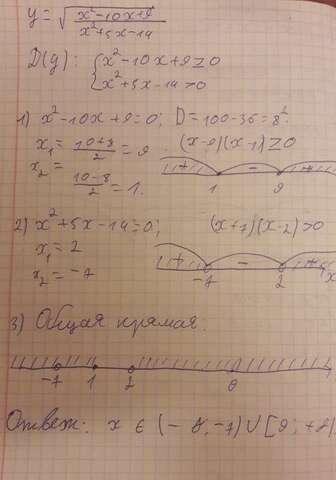 y = √((x²-10x+9)/(x²+5x-14))
D(y): { x²-10x+9≥0
x²+5x-14>0
1) x²-10x+9=0; D=100-36=8².
x₁ = (10+8)/2 = 9 (x-9)(x-1)≥0
x₂ = (10-8)/2 = 1.
+ - +
1 9
2) x²+5x-14=0; (x+7)(x-2)>0
x₁ = 2
x₂ = -7
+ - +
-7 2 x
3) Общая прямая.
-7 1 2 9
Ответ: x ∈ (-∞; -7)∪[9; +∞)